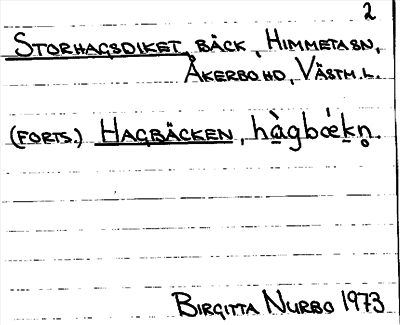 2
STORHAGSDIKET, BÄCK, HIMMETA SN,
ÅKERBO HD, VÄSTM. L.
(FORTS.) HAGBÄCKEN, hàgbǽkn̥.
BIRGITTA NURBO 1973